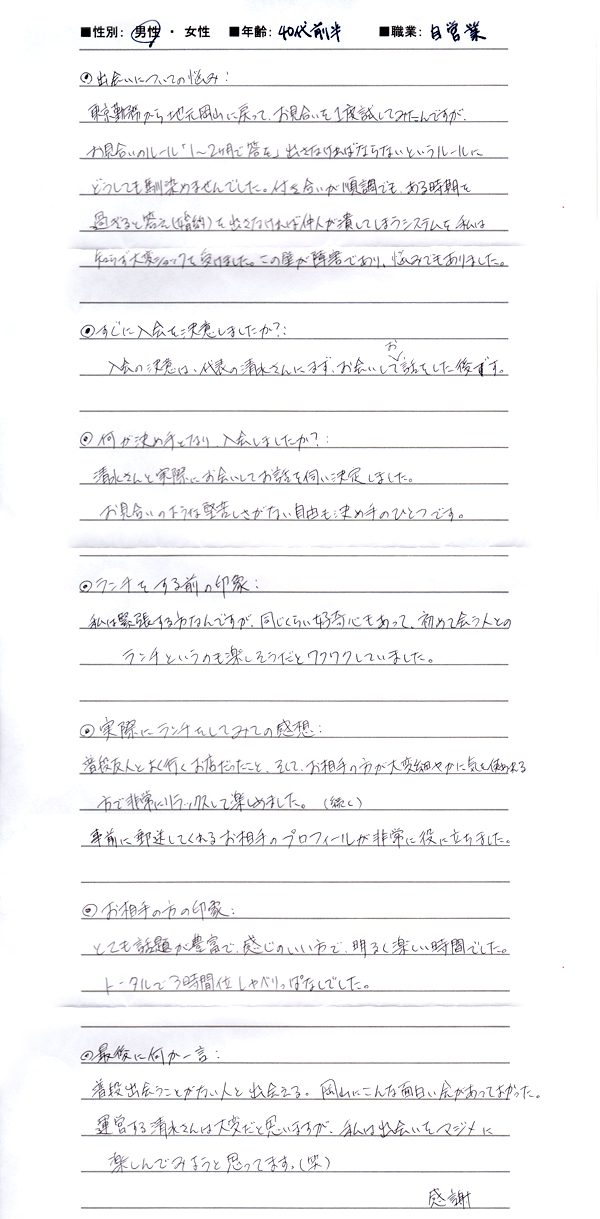 ■性別: 男性 ・ 女性 ■年齢: 40代前半 ■職業: 自営業
◎出会いについての悩み:
東京勤務から地元岡山に戻って、お見合いを1度試してみたんですが、
お見合いのルール「1〜2ヶ月で答を」出さなければならないというルールに
どうしても馴染めませんでした。付き合いが順調でも、ある時期を
過ぎると答え(婚約)を出さなければ仲人が潰してしまうシステムを私は
知らず大変ショックを受けました。この壁が障害であり、悩みでもありました。
◎すぐに入会を決意しましたか?:
入会の決意は、代表の清水さんにまず、お会いしてお話をした後です。
◎何が決め手となり、入会しましたか?:
清水さんと実際にお会いしてお話を伺い決定しました。
お見合いのような堅苦しさがない自由も決め手のひとつです。
◎ランチをする前の印象:
私は緊張する方なんですが、同じくらい好奇心もあって、初めて会う人との
ランチというのも楽しそうだとワクワクしていました。
◎実際にランチをしてみての感想:
普段友人とよく行くお店だったこと、そして、お相手の方が大変細やかに気を使われる
方で非常にリラックスして楽しめました。(続く)
事前に郵送してくれるお相手のプロフィールが非常に役に立ちました。
◎お相手の方の印象:
とても話題が豊富で、感じのいい方で、明るく楽しい時間でした。
トータルで3時間位しゃべりっぱなしでした。
◎最後に何か一言:
普段出会うことがない人と出会える。岡山にこんな面白い会があってよかった。
運営する清水さんは大変だと思いますが、私は出会いをマジメに
楽しんでみようと思ってます。(笑)
感謝